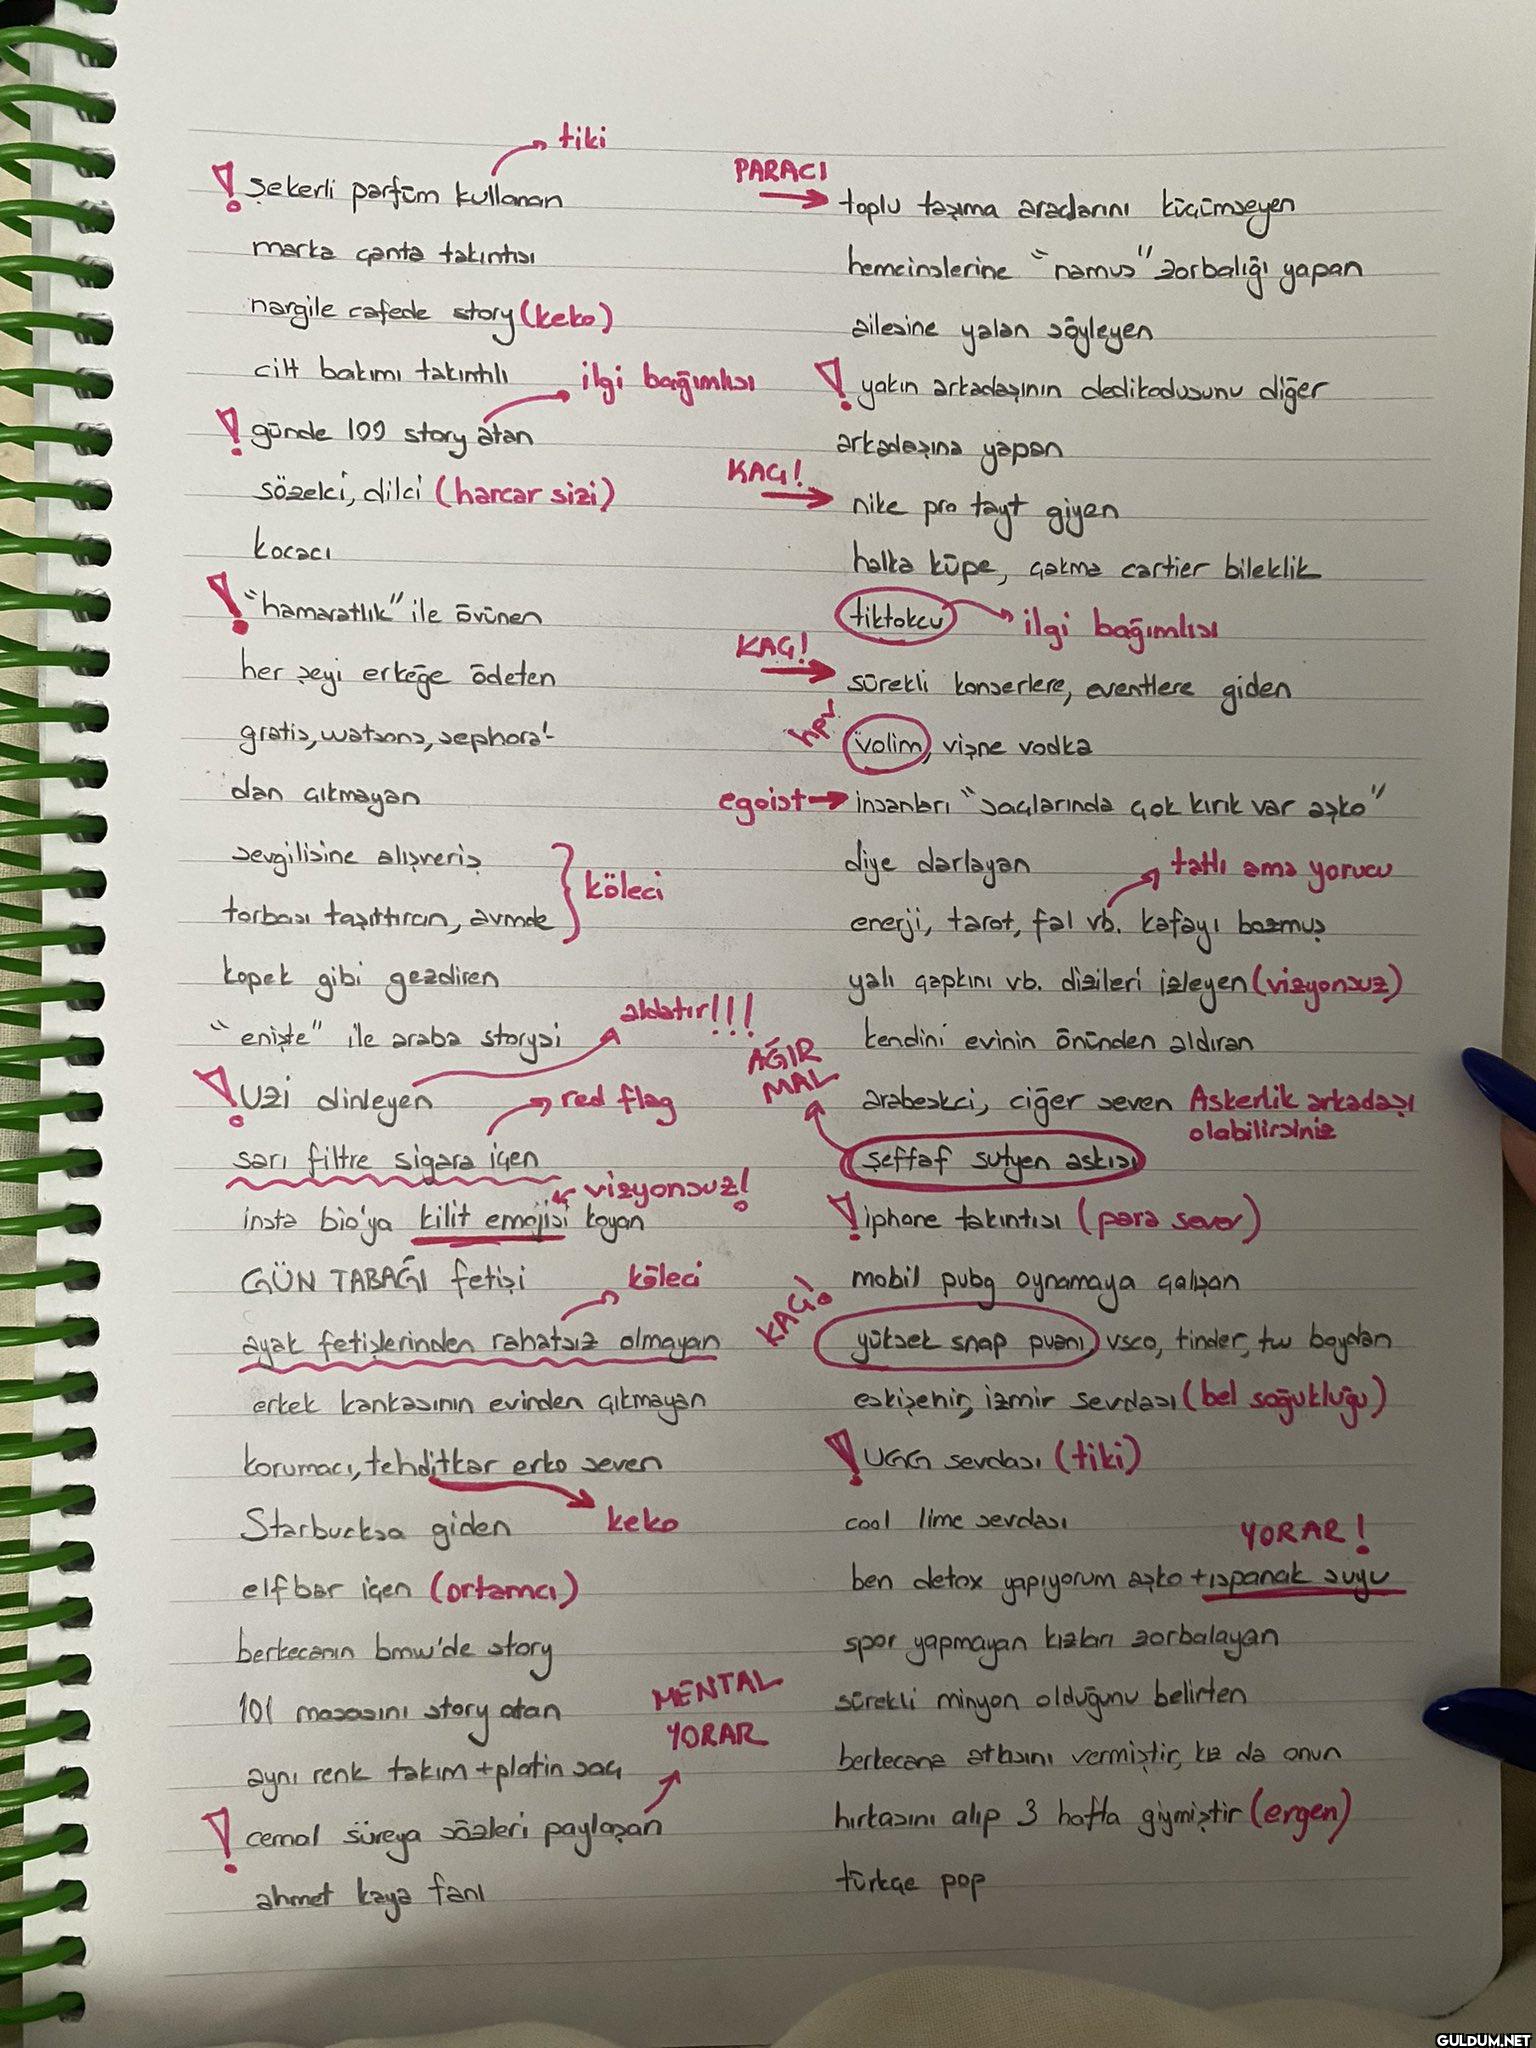 tiki
! şekerli parfüm kullanan
marka çanta takıntısı
nargile cafede story (keko)
cilt bakımı takıntılı
ilgi bağımlısı
! günde 109 story atan
sözelci, dilci (harcar sizi)
kocacı
! "hamaratlık" ile övünen
her şeyi erkeğe ödeten
gratis, watsons, sephora'-
dan çıkmayan
sevgilisine alışveriş
torbası taşıttıran, avmde
köleci
köpek gibi gezdiren
"enişte" ile araba storysi
aldatır!!!
! Uzi dinleyen
red flag
sarı filtre sigara içen
vizyonsuz!
insta bio'ya kilit emojisi koyan
GÜN TABAĞI fetişi
köleci
ayak fetişlerinden rahatsız olmayan
erkek kankasının evinden çıkmayan
korumacı, tehditkar erko seven
keko
Starbucksa giden
elfbar içen (ortamcı)
berkecanın bmw'de story
101 masasını story atan
MENTAL
YORAR
aynı renk takım + platin saç
! cemal süreya sözleri paylaşan
ahmet kaya fanı
PARACI
toplu taşıma araçlarını küçümseyen
hemcinslerine "namus" zorbalığı yapan
ailesine yalan söyleyen
! yakın arkadaşının dedikodusunu diğer
arkadaşına yapan
KAÇ!
nike pro tayt giyen
halka küpe, çakma cartier bileklik
tiktokcu
ilgi bağımlısı
KAÇ!
sürekli konserlere, eventlere giden
volim, vişne vodka
egoist
insanları "saçlarında çok kırık var aşko"
diye darlayan
tatlı ama yorucu
enerji, tarot, fal vb. kafayı bozmuş
yalı çapkını vb. dizileri izleyen (vizyonsuz)
kendini evinin önünden aldıran
AĞIR
MAL
arabeskci, ciğer seven Askerlik arkadaşı
olabilirsiniz
şeffaf sutyen askısı
! iphone takıntısı (para sever)
mobil pubg oynamaya çalışan
KAÇ!
yüksek snap puanı, vsco, tinder, tw baydan
eskişehir, izmir sevdası (bel soğukluğu)
! UGG sevdası (tiki)
cool lime sevdası
YORAR!
ben detox yapıyorum aşko + ıspanak suyu
spor yapmayan kızları zorbalayan
sürekli minyon olduğunu belirten
berkecana atkısını vermiştir, kız da onun
hırkasını alıp 3 hafta giymiştir (ergen)
türkçe pop
GULDUM.NET